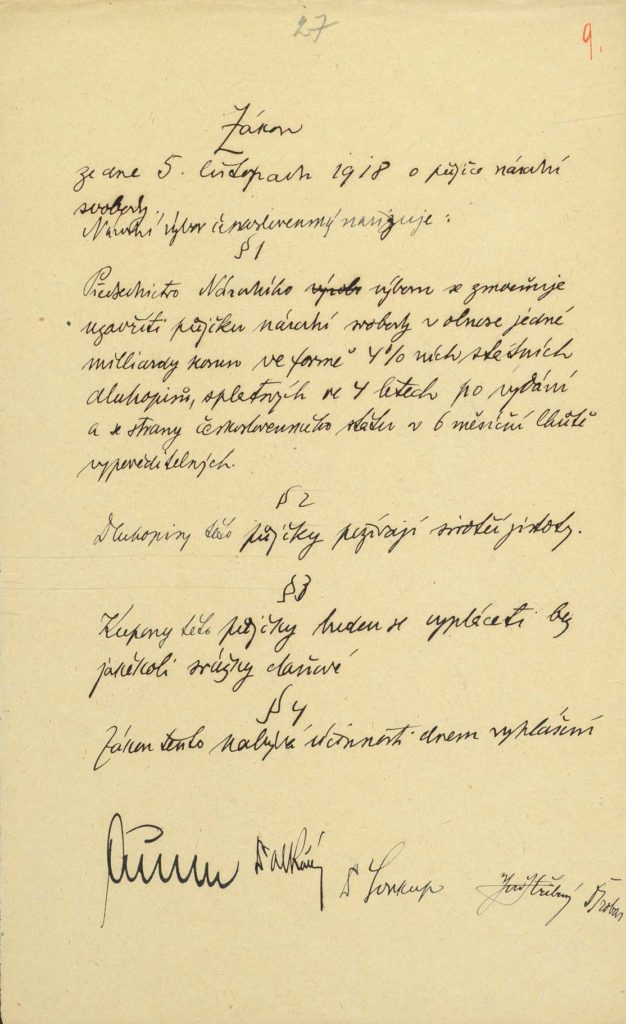 27
9.
Zákon
ze dne 5. listopadu 1918 o půjčce národní
svobody.
Národní výbor československý nařizuje:
§ 1
Předsednictvo Národního výboru výboru se zmocňuje
uzavříti půjčku národní svobody v obnose jedné
milliardy korun ve formě 4% ních státních
dluhopisů, splatných ve 4 letech po vydání
a se strany československého státu v 6 měsíční lhůtě
vypověditelných.
§ 2
Dluhopisy této půjčky požívají sirotčí jistoty.
§ 3
Kupony této půjčky budou se vypláceti bez
jakékoli srážky daňové
§ 4
Zákon tento nabývá účinnosti dnem vyhlášení
Dr Soukup
Jiří Stříbrný
Šrobár